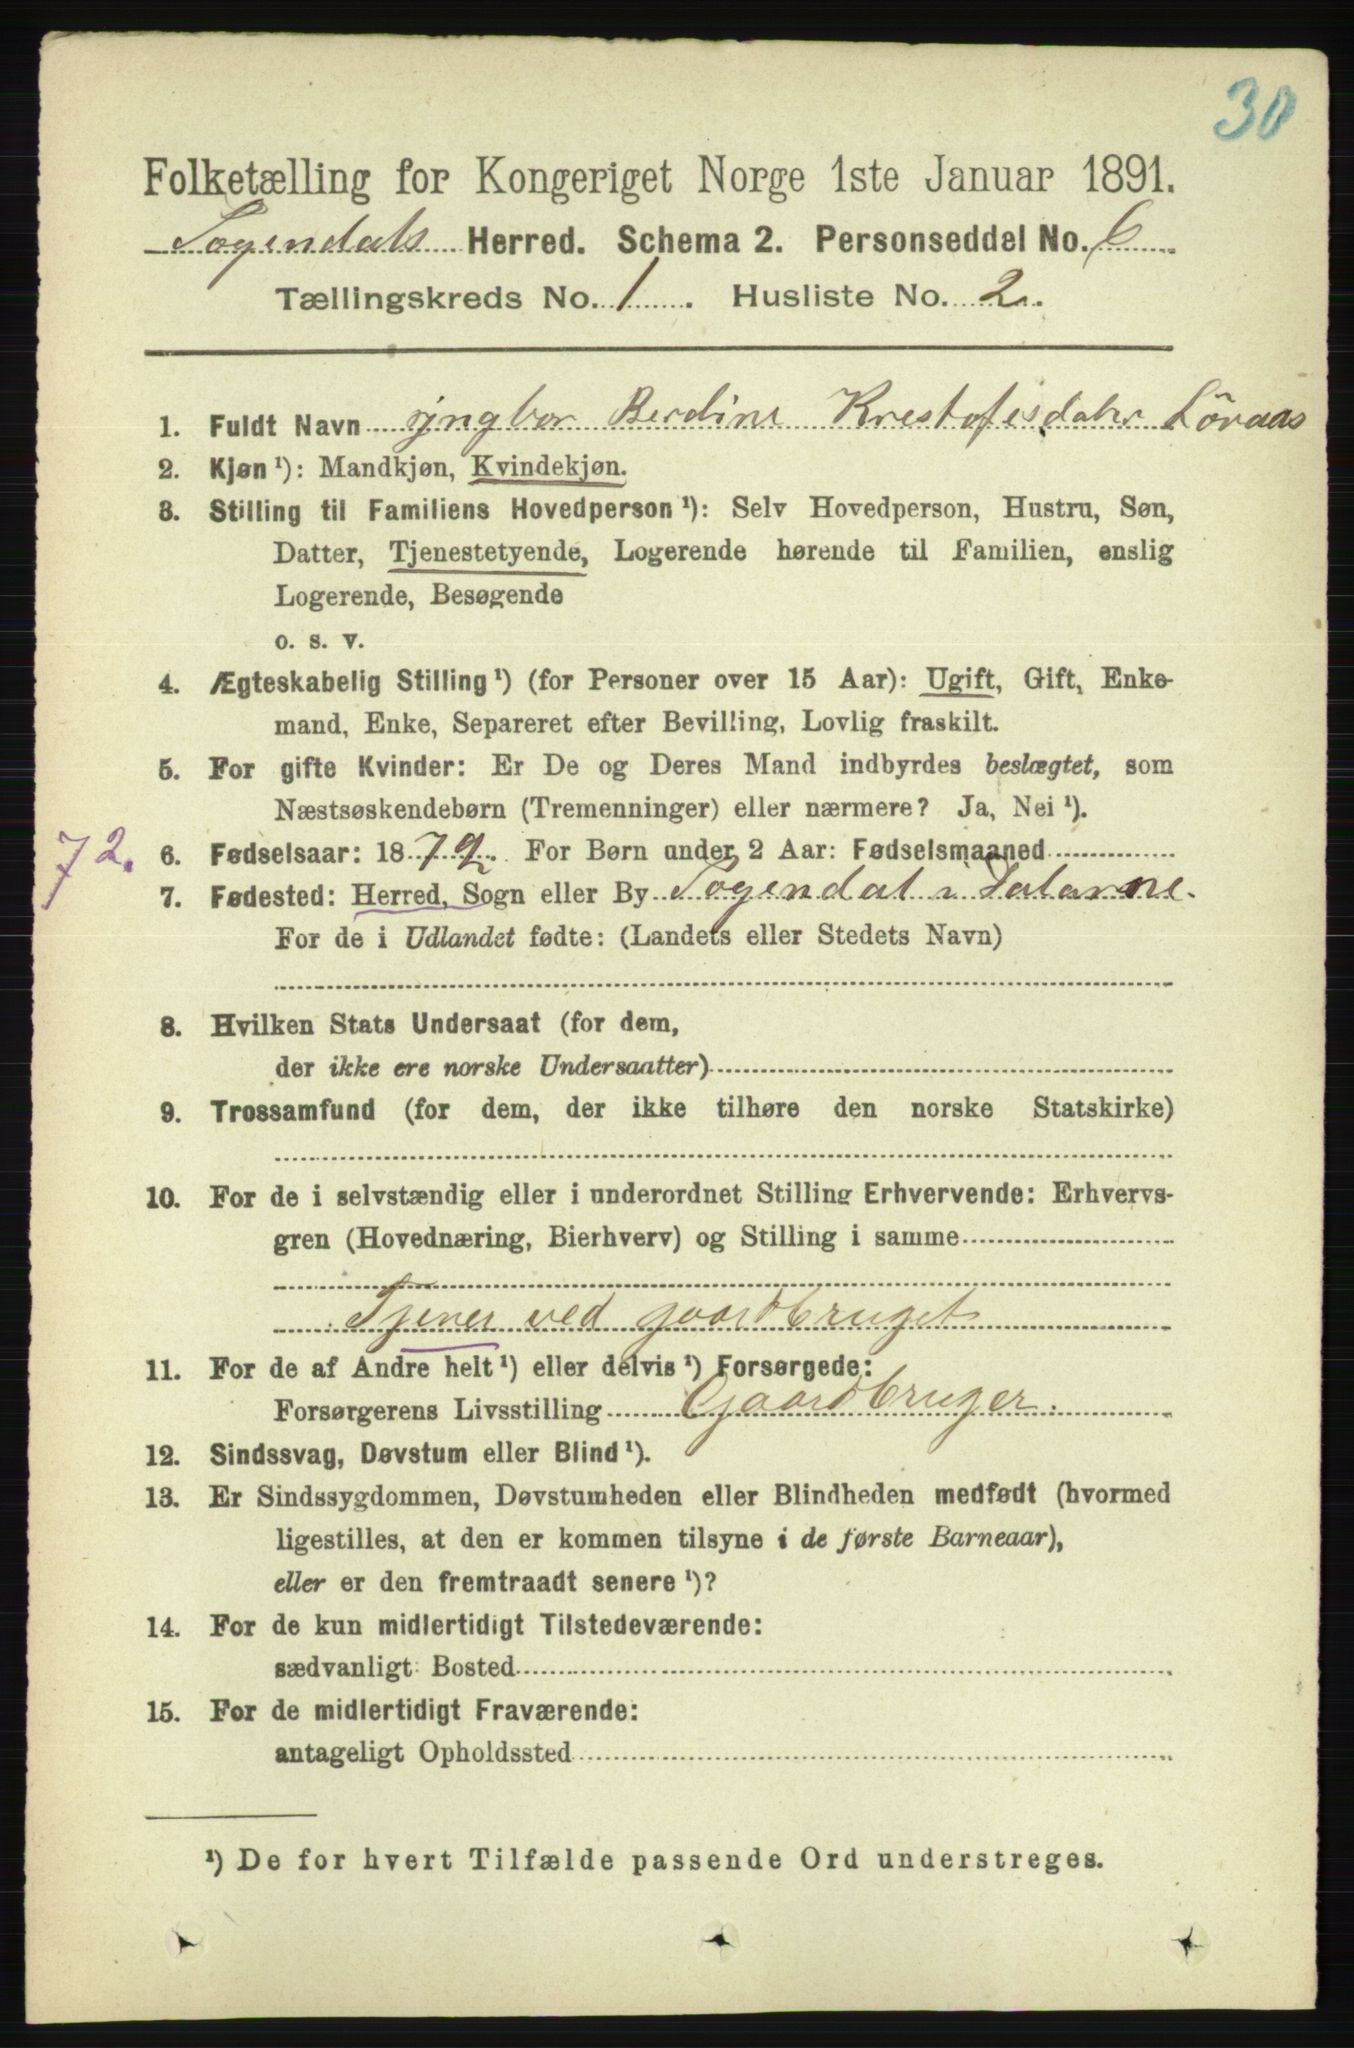 30
Folketælling for Kongeriget Norge 1ste Januar 1891.
Sogendals Herred. Schema 2. Personseddel No. 6
Tællingskreds No. 1. Husliste No. 2.
1. Fuldt Navn Yngbor Berdine Krestofersdater Löraas
2. Kjøn ¹): Mandkjøn, Kvindekjøn.
3. Stilling til Familiens Hovedperson ¹): Selv Hovedperson, Hustru, Søn,
Datter, Tjenestetyende, Logerende hørende til Familien, enslig
Logerende, Besøgende
o. s. v.
4. Ægteskabelig Stilling ¹) (for Personer over 15 Aar): Ugift, Gift, Enke-
mand, Enke, Separeret efter Bevilling, Lovlig fraskilt.
5. For gifte Kvinder: Er De og Deres Mand indbyrdes beslægtet, som
Næstsøskendebørn (Tremenninger) eller nærmere? Ja, Nei ¹).
72. 6. Fødselsaar: 1872. For Børn under 2 Aar: Fødselsmaaned
7. Fødested: Herred, Sogn eller By Sogendal i Dalarne.
For de i Udlandet fødte: (Landets eller Stedets Navn)
8. Hvilken Stats Undersaat (for dem,
der ikke ere norske Undersaatter)
9. Trossamfund (for dem, der ikke tilhøre den norske Statskirke)
10. For de i selvstændig eller i underordnet Stilling Erhvervende: Erhvervs-
gren (Hovednæring, Bierhverv) og Stilling i samme
Tjener ved gaardbruget
11. For de af Andre helt ¹) eller delvis ¹) Forsørgede:
Forsørgerens Livsstilling Gaardbruger.
12. Sindssvag, Døvstum eller Blind ¹).
13. Er Sindssygdommen, Døvstumheden eller Blindheden medfødt (hvormed
ligestilles, at den er kommen tilsyne i de første Barneaar),
eller er den fremtraadt senere ¹)?
14. For de kun midlertidigt Tilstedeværende:
sædvanligt Bosted
15. For de midlertidigt Fraværende:
antageligt Opholdssted
¹) De for hvert Tilfælde passende Ord understreges.